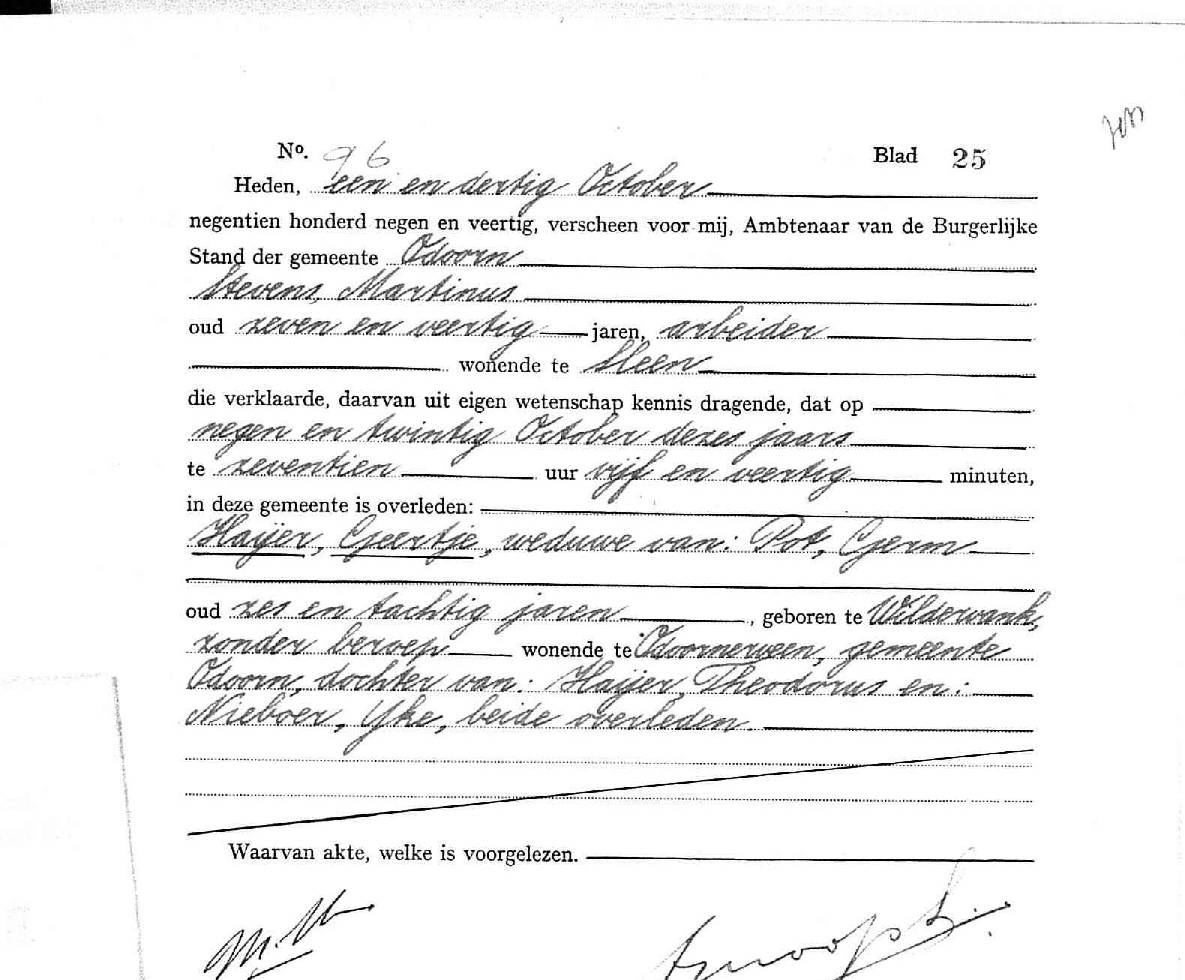 Nº. 96 Blad 25
Heden, een en dertig October
negentien honderd negen en veertig, verscheen voor mij, Ambtenaar van de Burgerlijke
Stand der gemeente Odoorn
Stevens, Martinus
oud zeven en veertig jaren, arbeider
wonende te Sleen
die verklaarde, daarvan uit eigen wetenschap kennis dragende, dat op
negen en twintig October dezes jaars
te zeventien uur vijf en veertig minuten,
in deze gemeente is overleden:
Haijer, Geertje, weduwe van: Pot, Germ
oud zes en tachtig jaren, geboren te Wildervank,
zonder beroep wonende te Odoornerveen, gemeente
Odoorn, dochter van: Haijer, Theodorus en:
Nieboer, Yke, beide overleden.
Waarvan akte, welke is voorgelezen.